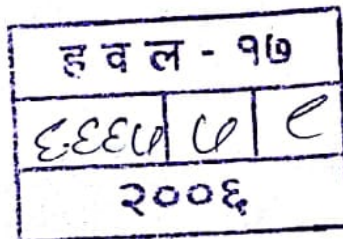 ह व ल - १७
६६६७ ७ ९
२००६